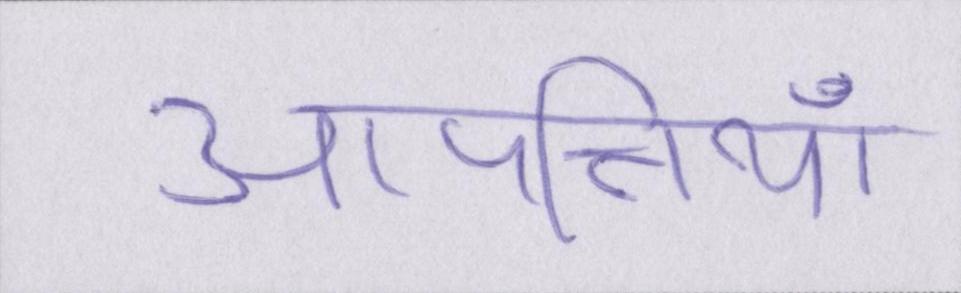 आपत्तियाँ